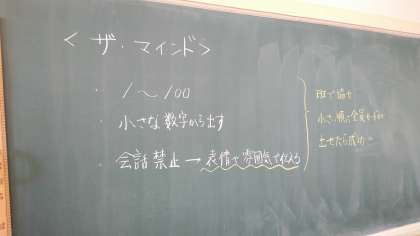 <ザ・マインド>
・ 1～100
・ 小さな数字から出す
・ 会話禁止→表情や雰囲気で伝える
班で協力
小さい順に全員
出せたら成功